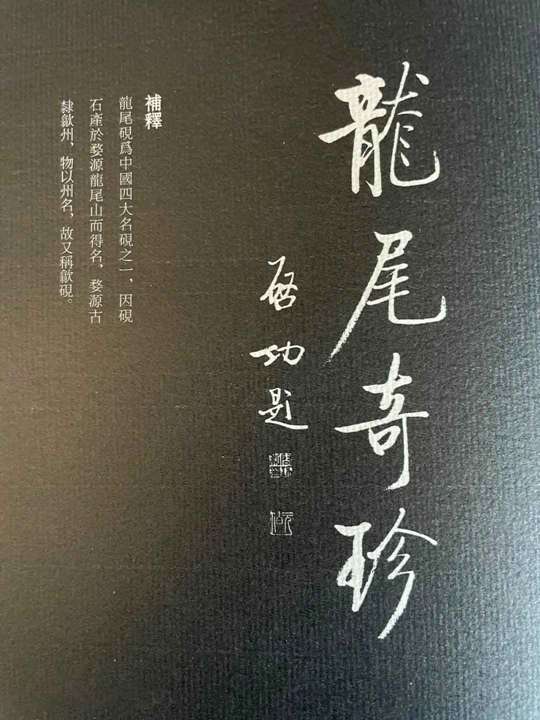 龍尾奇珍
啓功題
補釋
龍尾硯爲中國四大名硯之一，因硯
石產於婺源龍尾山而得名，婺源古
隸歙州，物以州名，故又稱歙硯。